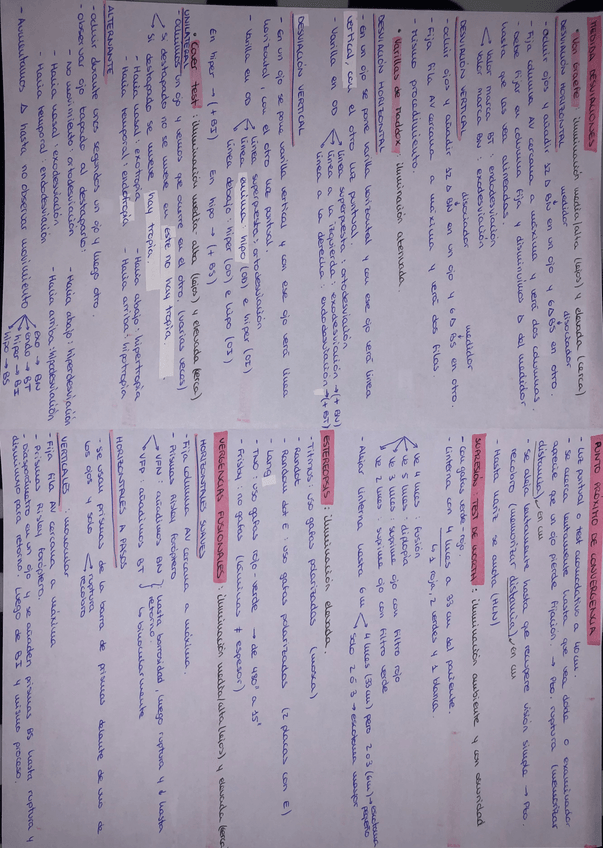 MEDIDA DESVIACIONES
• Von Graefe: iluminación media/alta (lejos) y elevada (cerca)
DESVIACIÓN HORIZONTAL
medidor disociador
- Ocluir ojos y añadir 12 Δ BN en un ojo y 6 Δ BS en otro.
- Fija columna AV cercana a máxima y verá dos columnas.
- Debe fijar en columna fija y disminuimos Δ del medidor
hasta que las vea alineadas.
Valor marca BT: endodesviación
Valor marca BN: exodesviación
DESVIACIÓN VERTICAL
disociador medidor
- Ocluir ojos y añadir 12 Δ BN en un ojo y 6 Δ BS en otro.
- Fija fila AV cercana a máxima y verá dos filas.
- Mismo procedimiento.
• Varillas de Maddox: iluminación atenuada.
DESVIACIÓN HORIZONTAL
- En un ojo se pone varilla horizontal y con ese ojo verá línea
vertical, con el otro luz puntual.
- Varilla en OD
línea superpuesta: ortodesviación
línea a la izquierda: exodesviación → (+ BN)
línea a la derecha: endodesviación → (+ BT)
DESVIACIÓN VERTICAL
- En un ojo se pone varilla vertical y con ese ojo verá línea
horizontal, con el otro luz puntual.
- Varilla en OD
línea superpuesta: ortodesviación
línea encima: hipo (OD) e hiper (OI)
línea debajo: hiper (OD) e hipo (OI)
En hiper → (+ BI) En hipo → (+ BS)
• Cover test: iluminación media-alta (lejos) y elevada (cerca)
UNILATERAL
- Ocluimos un ojo y vemos que ocurre en el otro. (varias veces)
Si destapado no se mueve en este no hay tropia.
Si destapado se mueve hay tropia.
- Hacia nasal: exotropia - Hacia abajo: hipertropia
- Hacia temporal: endotropia - Hacia arriba: hipotropia
ALTERNANTE
- Ocluir durante unos segundos un ojo y luego otro.
- Observar ojo tapado al destaparlo:
- No movimiento: ortodesviación
- Hacia nasal: exodesviación - Hacia abajo: hiperdesviación
- Hacia temporal: endodesviación - Hacia arriba: hipodesviación
- Aumentamos Δ hasta no observar movimiento
exo → BN
endo → BT
hiper → BI
hipo → BS
PUNTO PRÓXIMO DE CONVERGENCIA
- Luz puntual o test acomodativo a 40 cm.
- Se acerca lentamente hasta que vea doble o examinador
aprecie que un ojo pierde fijación. → Pto. ruptura (memorizar
distancia) en cm
- Se aleja lentamente hasta que recupere visión simple → Pto.
recobro (memorizar distancia) en cm
- Hasta nariz se anota (HLN)
SUPRESIÓN TEST DE WORTH: iluminación ambiente y con oscuridad
- Con gafas verde-rojo.
- Linterna con 4 luces a 33 cm del paciente.
↳ 1 roja, 2 verdes y 1 blanca.
Ve 4 luces: fusión
Ve 5 luces: diplopia
Ve 3 luces: suprime ojo con filtro rojo
Ve 2 luces: suprime ojo con filtro verde
- Alejar linterna hasta 6 m
4 luces (33 cm) pero 2 o 3 (6m) → escotoma pequeño
Solo 2 ó 3 → escotoma mayor
ESTEREOPSIS: iluminación elevada.
- Titmus: uso gafas polarizadas (mosca)
- Randot
- Random dot E: uso gafas polarizadas (2 placas con E)
- Lang
- TNO: uso gafas rojo-verde → de 480" a 15"
- Frisby: no gafas (láminas ≠ espesor)
VERGENCIAS FUSIONALES: iluminación media/alta (lejos) y elevada (cerca)
HORIZONTALES SUAVES
- Fija columna AV cercana a máxima.
- Prismas Risley foróptero
VFN: añadimos BN
VFP: añadimos BT
hasta borrosidad, luego ruptura y ↓ hasta
retorno.
↳ binocularmente
HORIZONTALES A PASOS
- Se usan prismas de la barra de prismas delante de uno de
los ojos y solo
ruptura
recobro
VERTICALES: monocular
- Fija fila AV cercana a máxima
- Prismas Risley foróptero.
- Disminuimos hasta retorno. Luego de BI y mismo proceso.